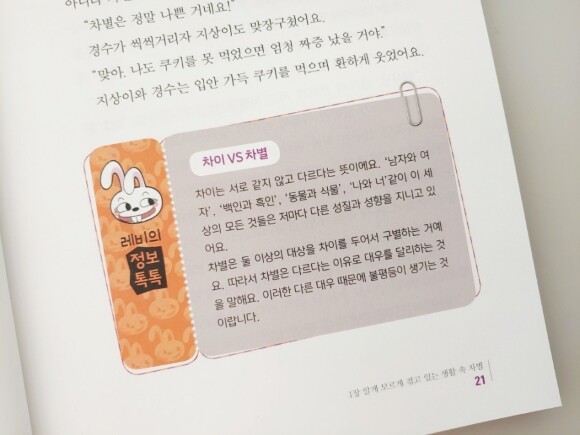 "차별은 정말 나쁜 거네요!"
경수가 씩씩거리자 지상이도 맞장구쳤어요.
"맞아. 나도 쿠키를 못 먹었으면 엄청 짜증 났을 거야."
지상이와 경수는 입안 가득 쿠키를 먹으며 환하게 웃었어요.
레비의
정보
톡톡
차이 VS 차별
차이는 서로 같지 않고 다르다는 뜻이에요. '남자와 여
자', '백인과 흑인', '동물과 식물', '나와 너'같이 이 세
상의 모든 것들은 저마다 다른 성질과 성향을 지니고 있
어요.
차별은 둘 이상의 대상을 차이를 두어서 구별하는 거예
요. 따라서 차별은 다르다는 이유로 대우를 달리하는 것
을 말해요. 이러한 다른 대우 때문에 불평등이 생기는 것
이랍니다.
1장 알게 모르게 겪고 있는 생활 속 차별
21